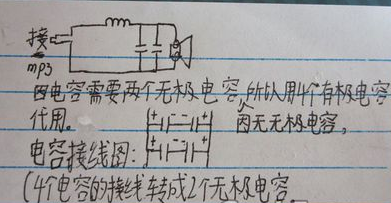 接
mp3
因电容需要两个无极电容,所以用4个有极电容
代用。
因无无极电容,
+ - - +
电容接线图:
+ - - +
(4个电容的接线转成2个无极电容。